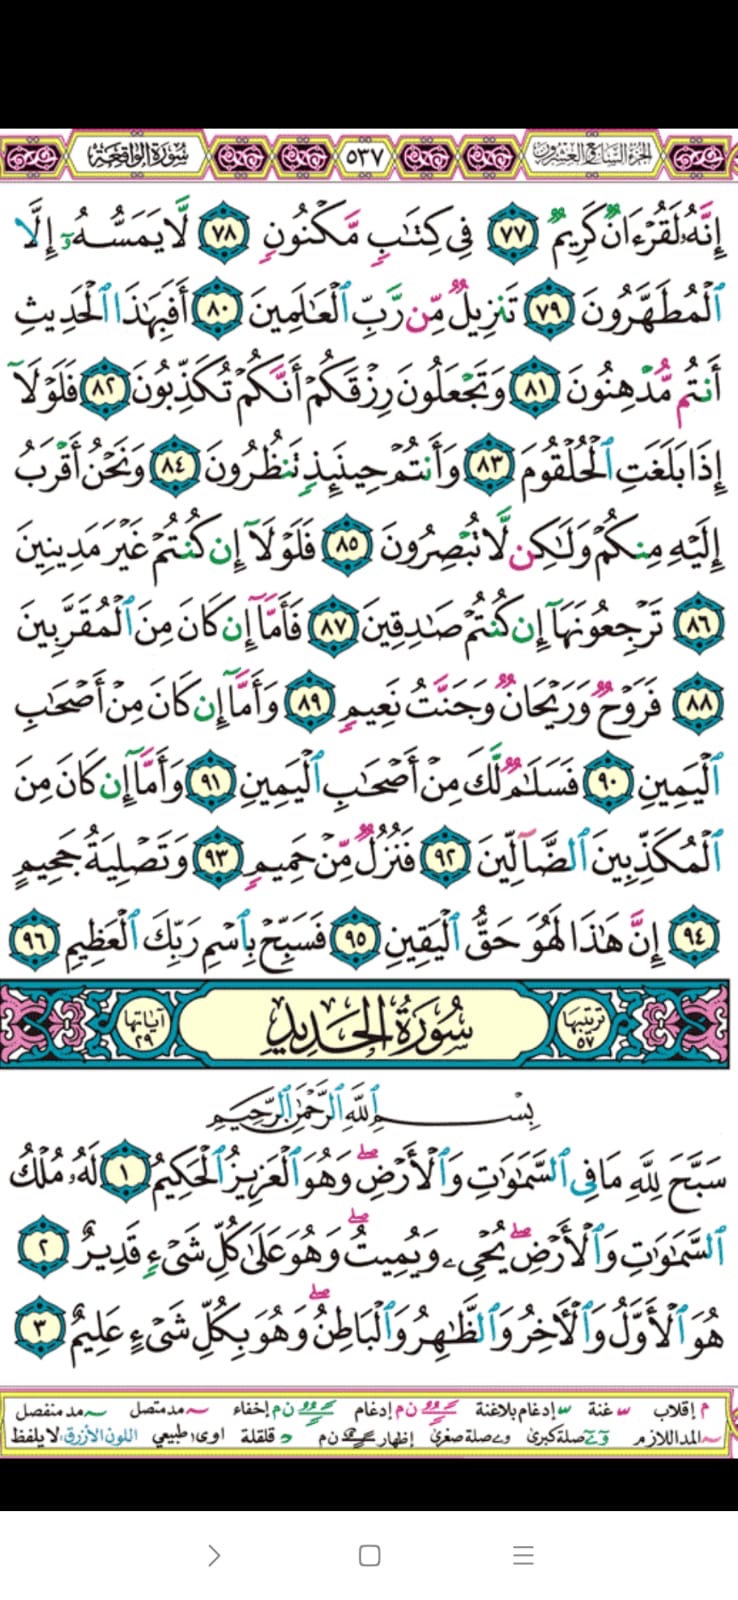 سورة الواقعة ٥٣٧ الجزء السابع والعشرون
إِنَّهُۥ لَقُرْءَانٌ كَرِيمٌ ٧٧ فِى كِتَٰبٍ مَّكْنُونٍ ٧٨ لَّا يَمَسُّهُۥٓ إِلَّا
ٱلْمُطَهَّرُونَ ٧٩ تَنزِيلٌ مِّن رَّبِّ ٱلْعَٰلَمِينَ ٨٠ أَفَبِهَٰذَا ٱلْحَدِيثِ
أَنتُم مُّدْهِنُونَ ٨١ وَتَجْعَلُونَ رِزْقَكُمْ أَنَّكُمْ تُكَذِّبُونَ ٨٢ فَلَوْلَآ
إِذَا بَلَغَتِ ٱلْحُلْقُومَ ٨٣ وَأَنتُمْ حِينَئِذٍ تَنظُرُونَ ٨٤ وَنَحْنُ أَقْرَبُ
إِلَيْهِ مِنكُمْ وَلَٰكِن لَّا تُبْصِرُونَ ٨٥ فَلَوْلَآ إِن كُنتُمْ غَيْرَ مَدِينِينَ
٨٦ تَرْجِعُونَهَآ إِن كُنتُمْ صَٰدِقِينَ ٨٧ فَأَمَّآ إِن كَانَ مِنَ ٱلْمُقَرَّبِينَ
٨٨ فَرَوْحٌ وَرَيْحَانٌ وَجَنَّتُ نَعِيمٍ ٨٩ وَأَمَّآ إِن كَانَ مِنْ أَصْحَٰبِ
ٱلْيَمِينِ ٩٠ فَسَلَٰمٌ لَّكَ مِنْ أَصْحَٰبِ ٱلْيَمِينِ ٩١ وَأَمَّآ إِن كَانَ مِنَ
ٱلْمُكَذِّبِينَ ٱلضَّآلِّينَ ٩٢ فَنُزُلٌ مِّنْ حَمِيمٍ ٩٣ وَتَصْلِيَةُ جَحِيمٍ
٩٤ إِنَّ هَٰذَا لَهُوَ حَقُّ ٱلْيَقِينِ ٩٥ فَسَبِّحْ بِٱسْمِ رَبِّكَ ٱلْعَظِيمِ ٩٦
ترتيبها ٥٧ سُورَةُ الحَدِيدِ آياتها ٢٩
بِسْمِ ٱللَّهِ ٱلرَّحْمَٰنِ ٱلرَّحِيمِ
سَبَّحَ لِلَّهِ مَا فِى ٱلسَّمَٰوَٰتِ وَٱلْأَرْضِ ۖ وَهُوَ ٱلْعَزِيزُ ٱلْحَكِيمُ ١ لَهُۥ مُلْكُ
ٱلسَّمَٰوَٰتِ وَٱلْأَرْضِ ۖ يُحْىِۦ وَيُمِيتُ ۖ وَهُوَ عَلَىٰ كُلِّ شَىْءٍ قَدِيرٌ ٢
هُوَ ٱلْأَوَّلُ وَٱلْءَاخِرُ وَٱلظَّٰهِرُ وَٱلْبَاطِنُ ۖ وَهُوَ بِكُلِّ شَىْءٍ عَلِيمٌ ٣
م إقلاب غنة إدغام بلاغنة ن م إدغام ن م إخفاء مد متصل مد منفصل
المد اللازم صلة كبرى صلة صغرى إظهار ن م قلقلة اوى طبيعي اللون الأزرق لا يلفظ